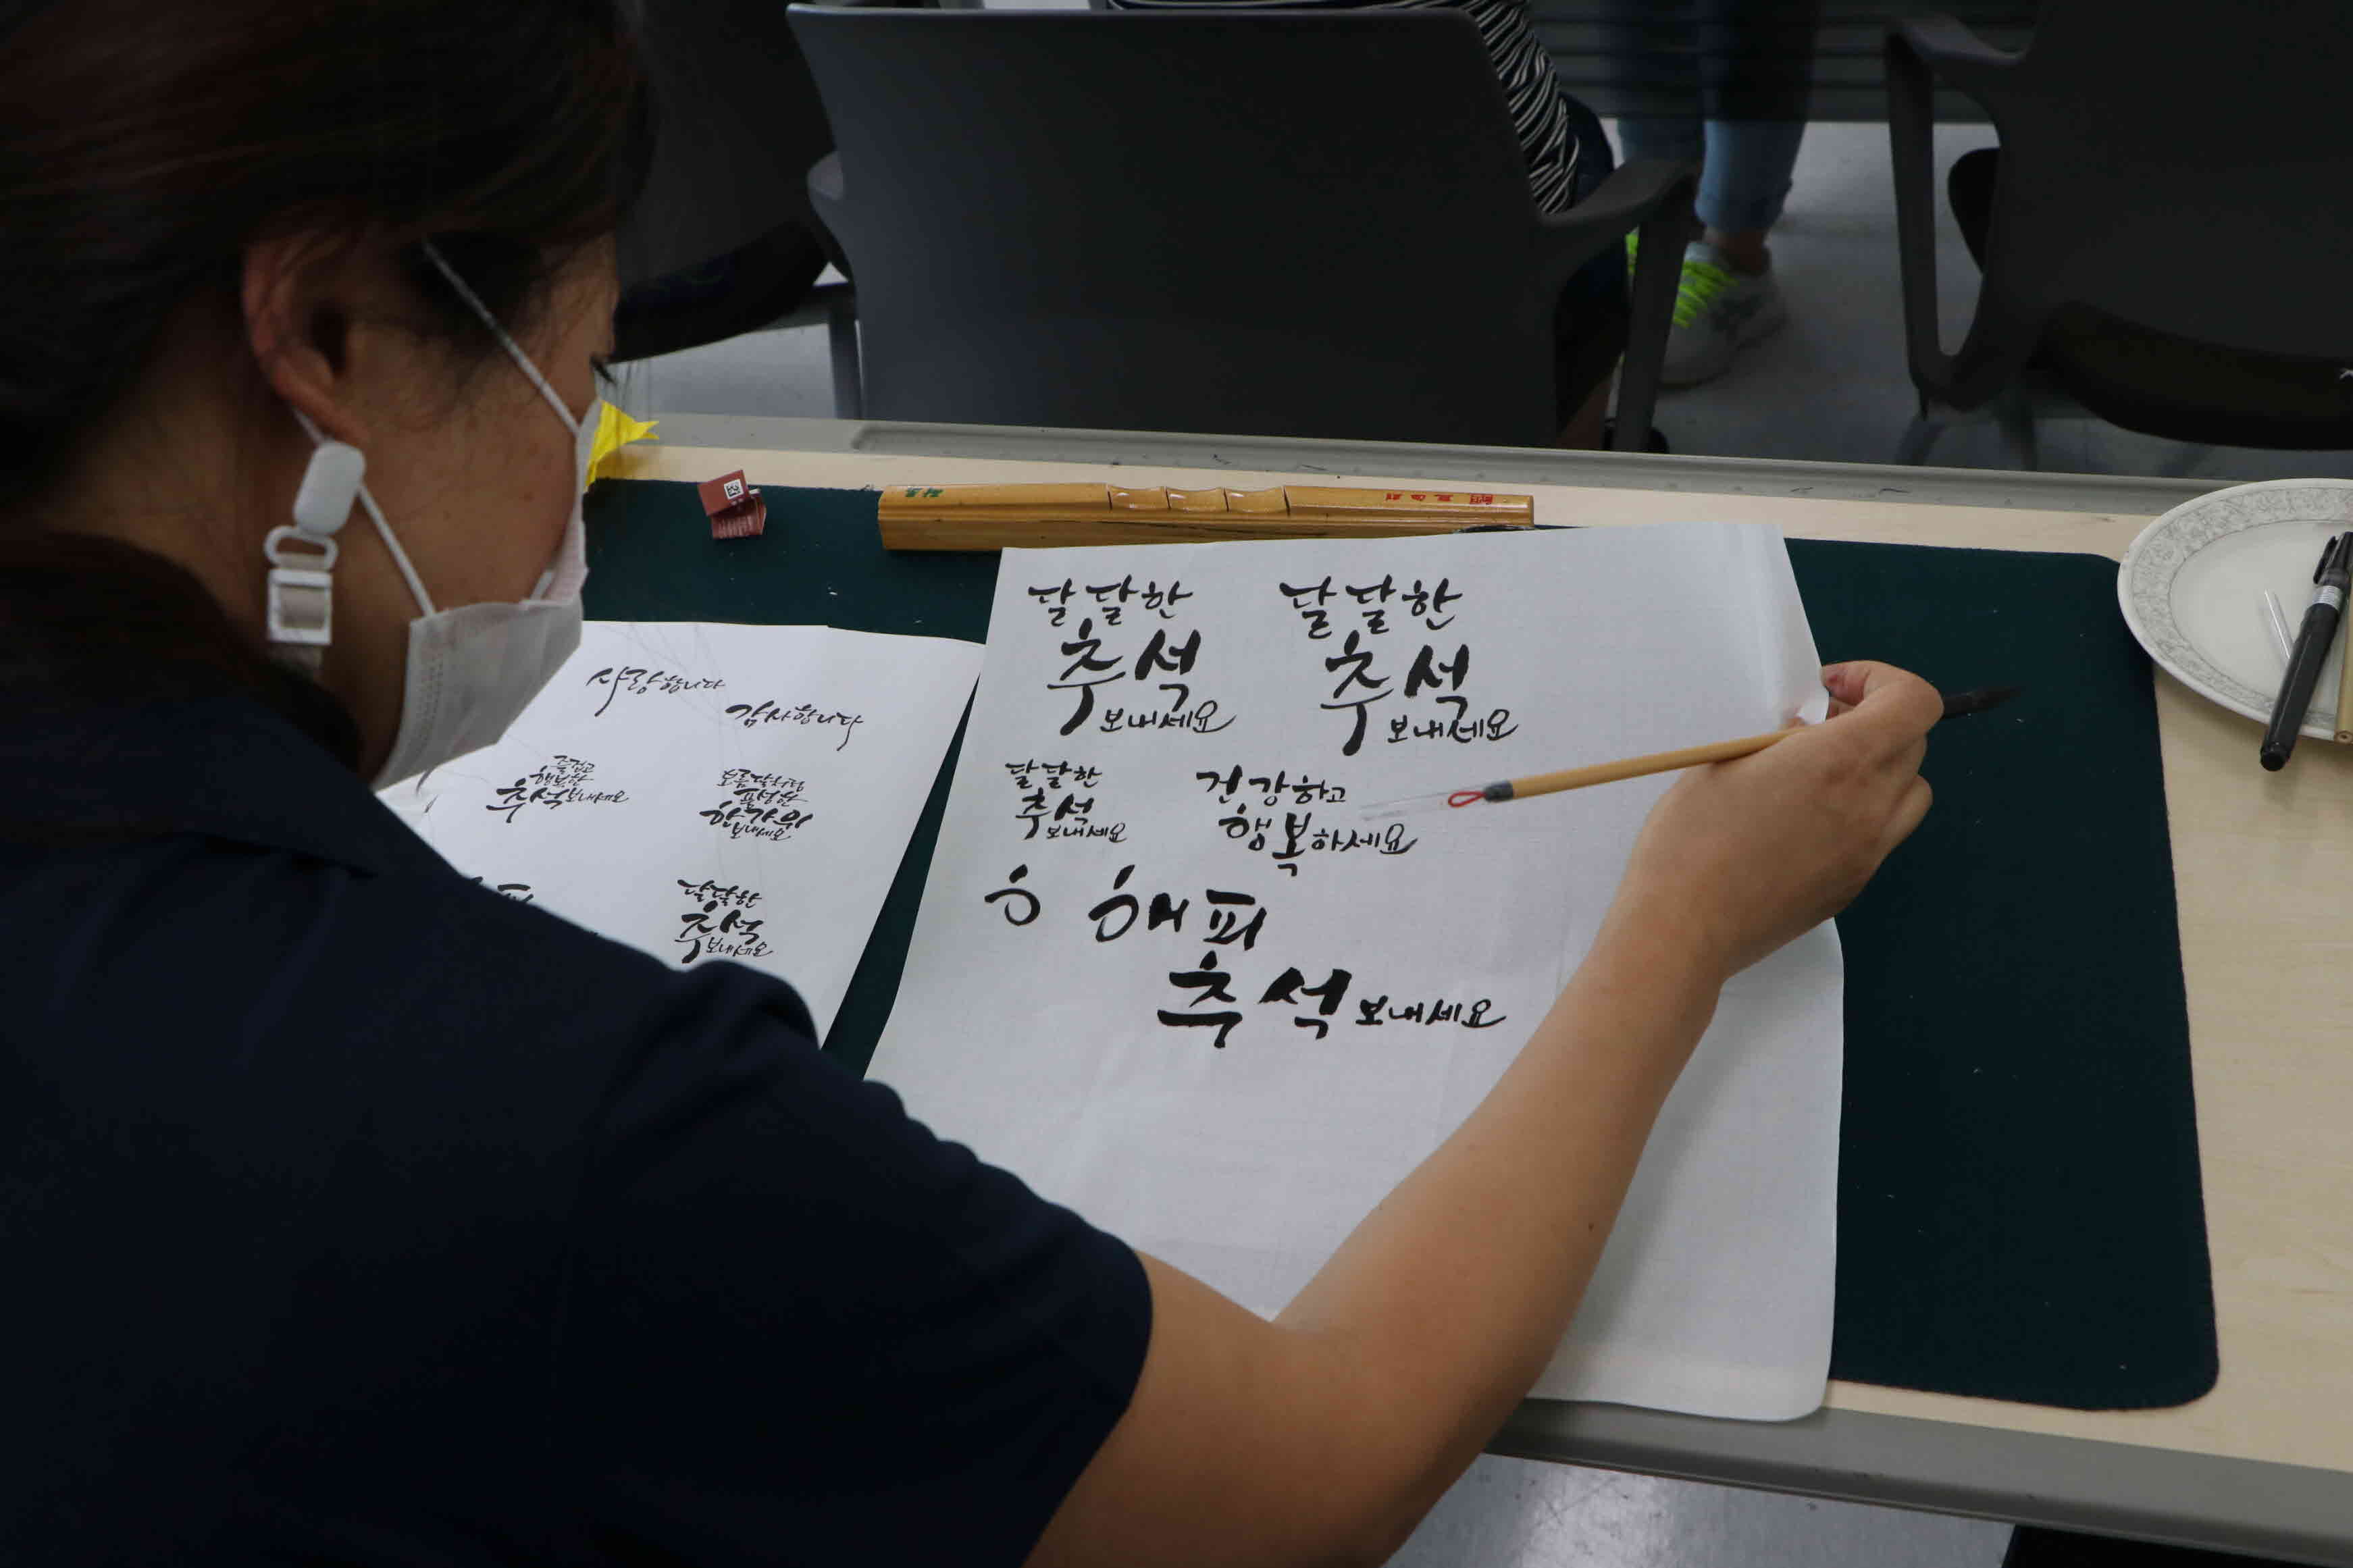 사랑합니다
감사합니다
즐겁고
행복한
추석 보내세요
보름달처럼
풍성한
한가위
보내세요
달달한
추석
보내세요
달달한
추석
보내세요
달달한
추석
보내세요
달달한
추석
보내세요
건강하고
행복하세요
해피
추석 보내세요